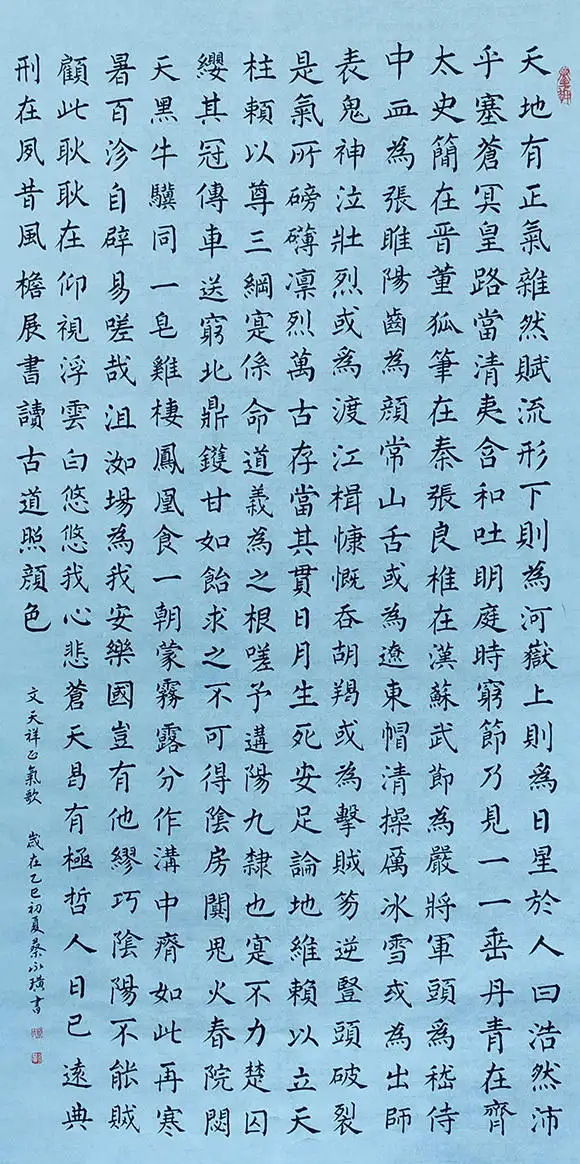 天地有正氣雜然賦流形下則為河嶽上則為日星於人曰浩然沛
乎塞蒼冥皇路當清夷含和吐明庭時窮節乃見一一垂丹青在齊
太史簡在晋董狐筆在秦張良椎在漢蘇武節為嚴將軍頭為嵇侍
中血為張睢陽齒為顔常山舌或為遼東帽清操厲冰雪或為出師
表鬼神泣壯烈或為渡江楫慷慨吞胡羯或為擊賊笏逆豎頭破裂
是氣所磅礴凛烈萬古存當其貫日月生死安足論地維賴以立天
柱賴以尊三綱寔係命道義為之根嗟予遘陽九隸也寔不力楚囚
纓其冠傳車送窮北鼎鑊甘如飴求之不可得陰房闃鬼火春院閟
天黑牛驥同一皂雞棲鳳凰食一朝蒙霧露分作溝中瘠如此再寒
暑百沴自辟易嗟哉沮洳場為我安樂國豈有他繆巧陰陽不能賊
顧此耿耿在仰視浮雲白悠悠我心悲蒼天曷有極哲人日已遠典
刑在夙昔風檐展書讀古道照顔色
文天祥正氣歌 歲在乙巳初夏蔡書